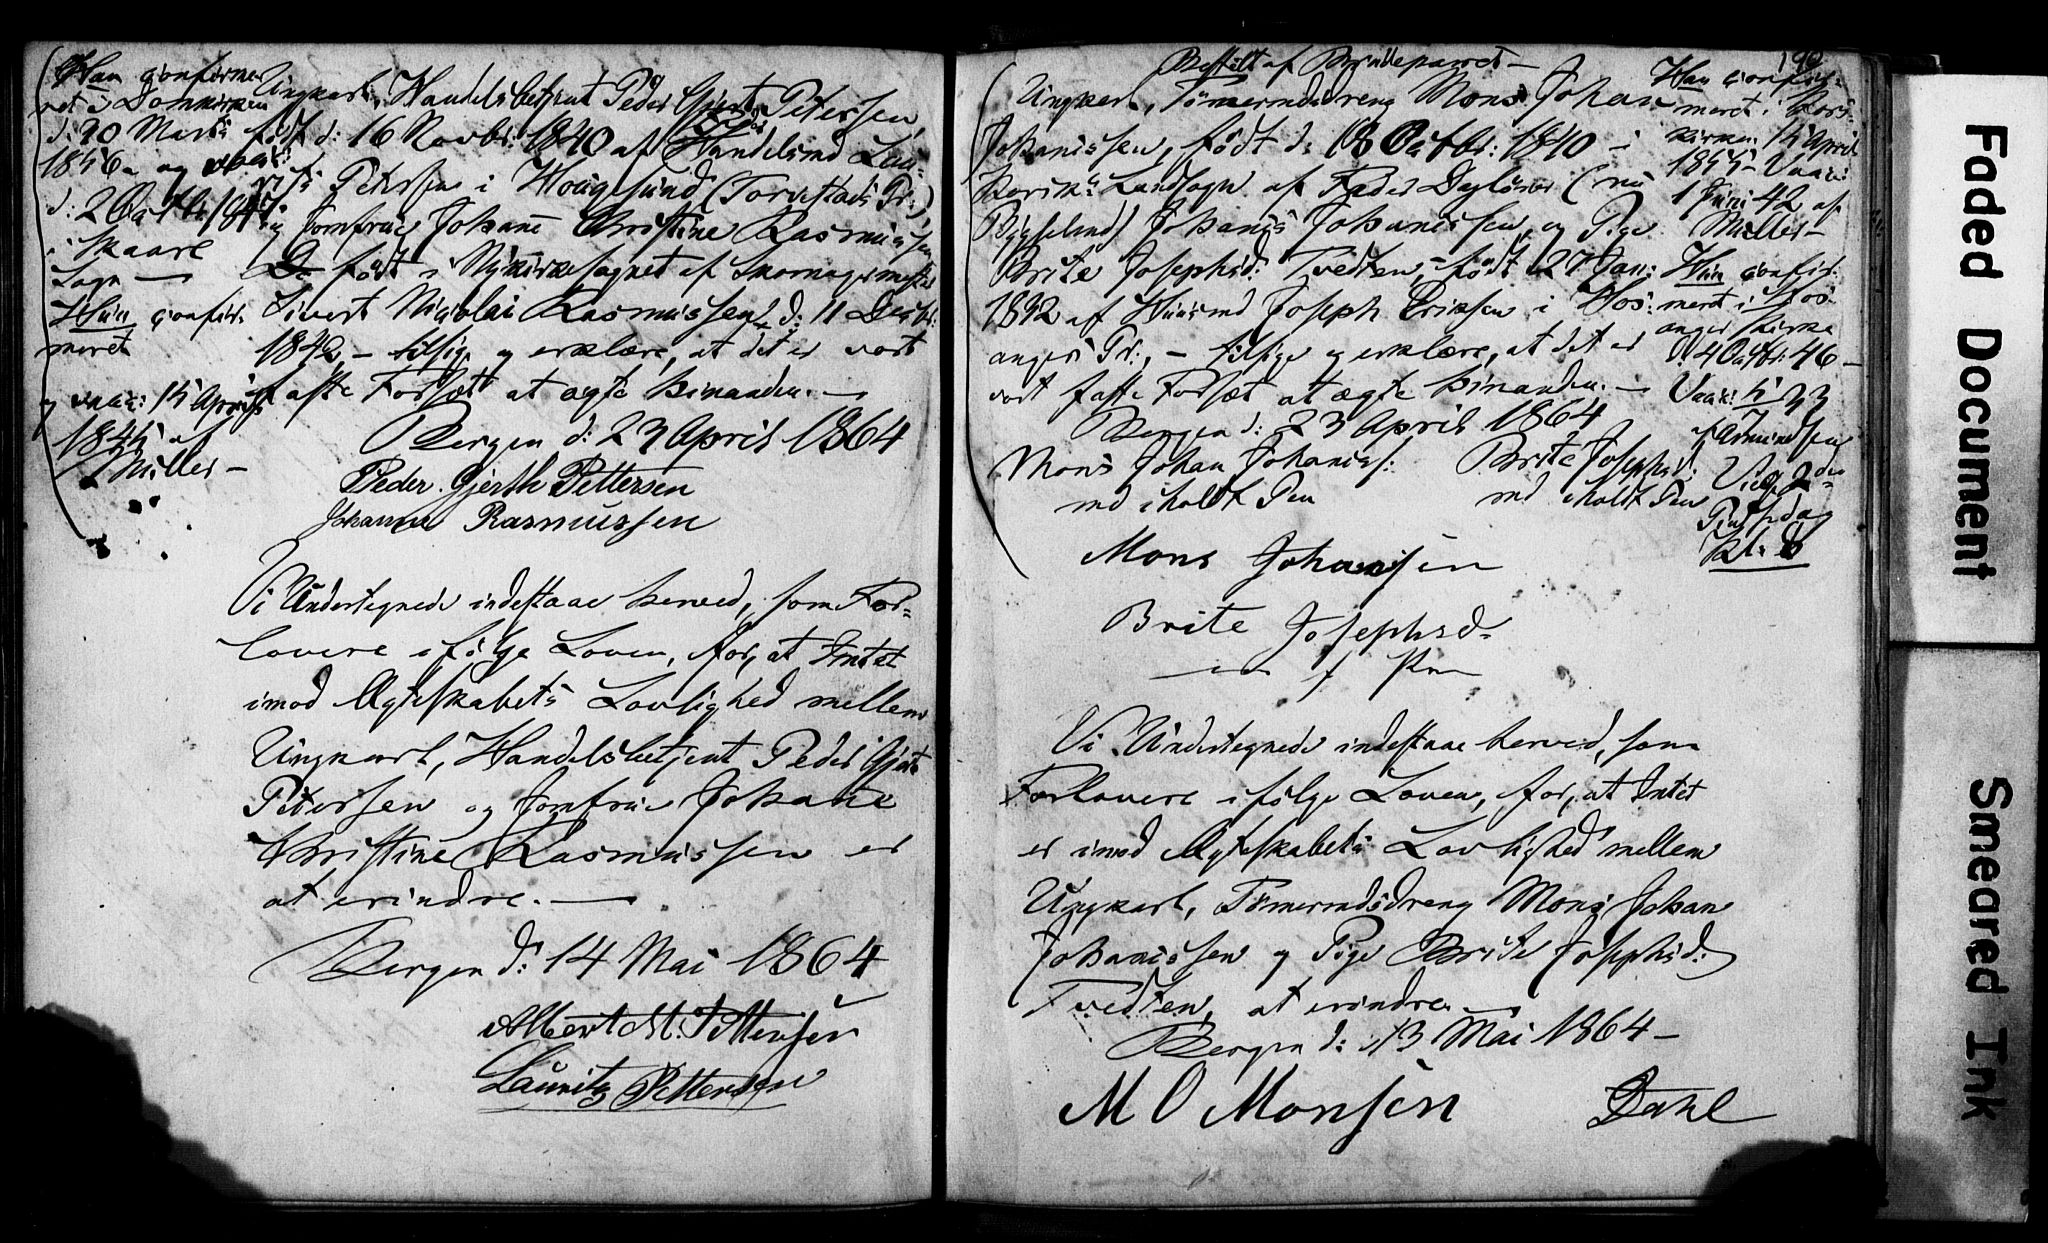 Han confirme-
ret i Domkirken
d: 20 Marts
1856 og vacc:
d: 2 Octbr 1847
i Skaare
Sogn —
Hun confir-
meret
og vacc: 15 April
1845 af
Müller —
Ungkarl, Handelsbetjent Peder Gjert Petersen,
født d: 16 Novbr: 1840 af Fader Handelsmd Lau-
rits Petersen i Hougesund (Torvestads Pr:),
og Jomfrue Johane Christine Rasmussen,
født i Nykirkesognet af Skomagermester
Sivert Nicolai Rasmussen d: 11 Decbr:
1842 — tilsige og erklære, at det er vort
faste Forsæt at ægte hinanden. —
Bergen d: 23 April 1864
Peder Gjerth Pettersen
Johanne Rasmussen
Vi Undertegnede indestaae herved, som For-
lovere ifølge Loven, for, at Intet
imod Ægteskabets Lovlighed mellem
Ungkarl, Handelsbetjent Peder Gjert
Petersen og Jomfrue Johane
Christine Rasmussen er
at erindre. —
Bergen d: 14 Mai 1864
Albert M. Pettersen
Lauritz Pettersen
190
Bestilt af Brudeparret —
Ungkarl, Tömermdsdreng Mons Johan
Johanissen, født d: 18 Octbr: 1840 — i
Korsk: Landsogn af Fader Dagløner (nu
) Johanes Johanissen, og Pige
Brite Josephsd: Tvedten, født 27 Jan:
1832 af Huusmd Joseph Eriksen i Hos-
angers Pr:, — tilsige og erklære, at det er
vort faste Forsæt at ægte hinanden. —
Bergen d: 23 April 1864
Mons Johan Johaniss: Brite Josephsd:
md iholdt Pen md iholdt Pen
Han confir-
meret i Kors-
kirken 15 April
1855 Vacc:
1 Juni 42 af
Müller —
Hun confir-
meret i Hos-
anger Kirke
d: 4 Octbr: 46 —
Vacc:
af Amundsen
Vies 2den
Pintsedag
Kl: 6
Mons Johansen
Brite Josephsd-
m f Pen
Vi Undertegnede indestaae herved, som
Forlovere ifølge Loven, for, at Intet
er imod Ægteskabets Lovlighed mellem
Ungkarl, Tömermdsdreng Mons Johan
Johanissen og Pige Brite Josephsd:
Tvedten, at erindre —
Bergen d: 13 Mai 1864 —
M O Monsen Dahl
Faded Document
Smeared Ink